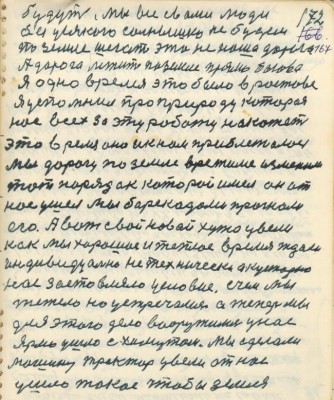 172
166
164
будут, мы все свои люди
без усякого солнышко не будем
по земле шагать это не наша дорога
А дорога лежит по земле прямо бугова
Я одно время это было в ростове
Я упомнил про природу которая
нас всех за эту роботу накажет
это время оно и к нам приблежалось
мы дорогу по земле время изменили
тот порядак которой имел он от
нас ушел мы барекадами прогнали
его. А вот свой новай хуто увели
как мы хорошее и теплое время ждали
индивидуално не технически а кустарно
нас заставляло условие, с чем мы
тяжело но устречалися а теперь мы
для этого дело вооружилися у нас
Ярмо ушло с хомутом. Мы сделали
машину трактор увели от нас
ушло такое чтобы земля